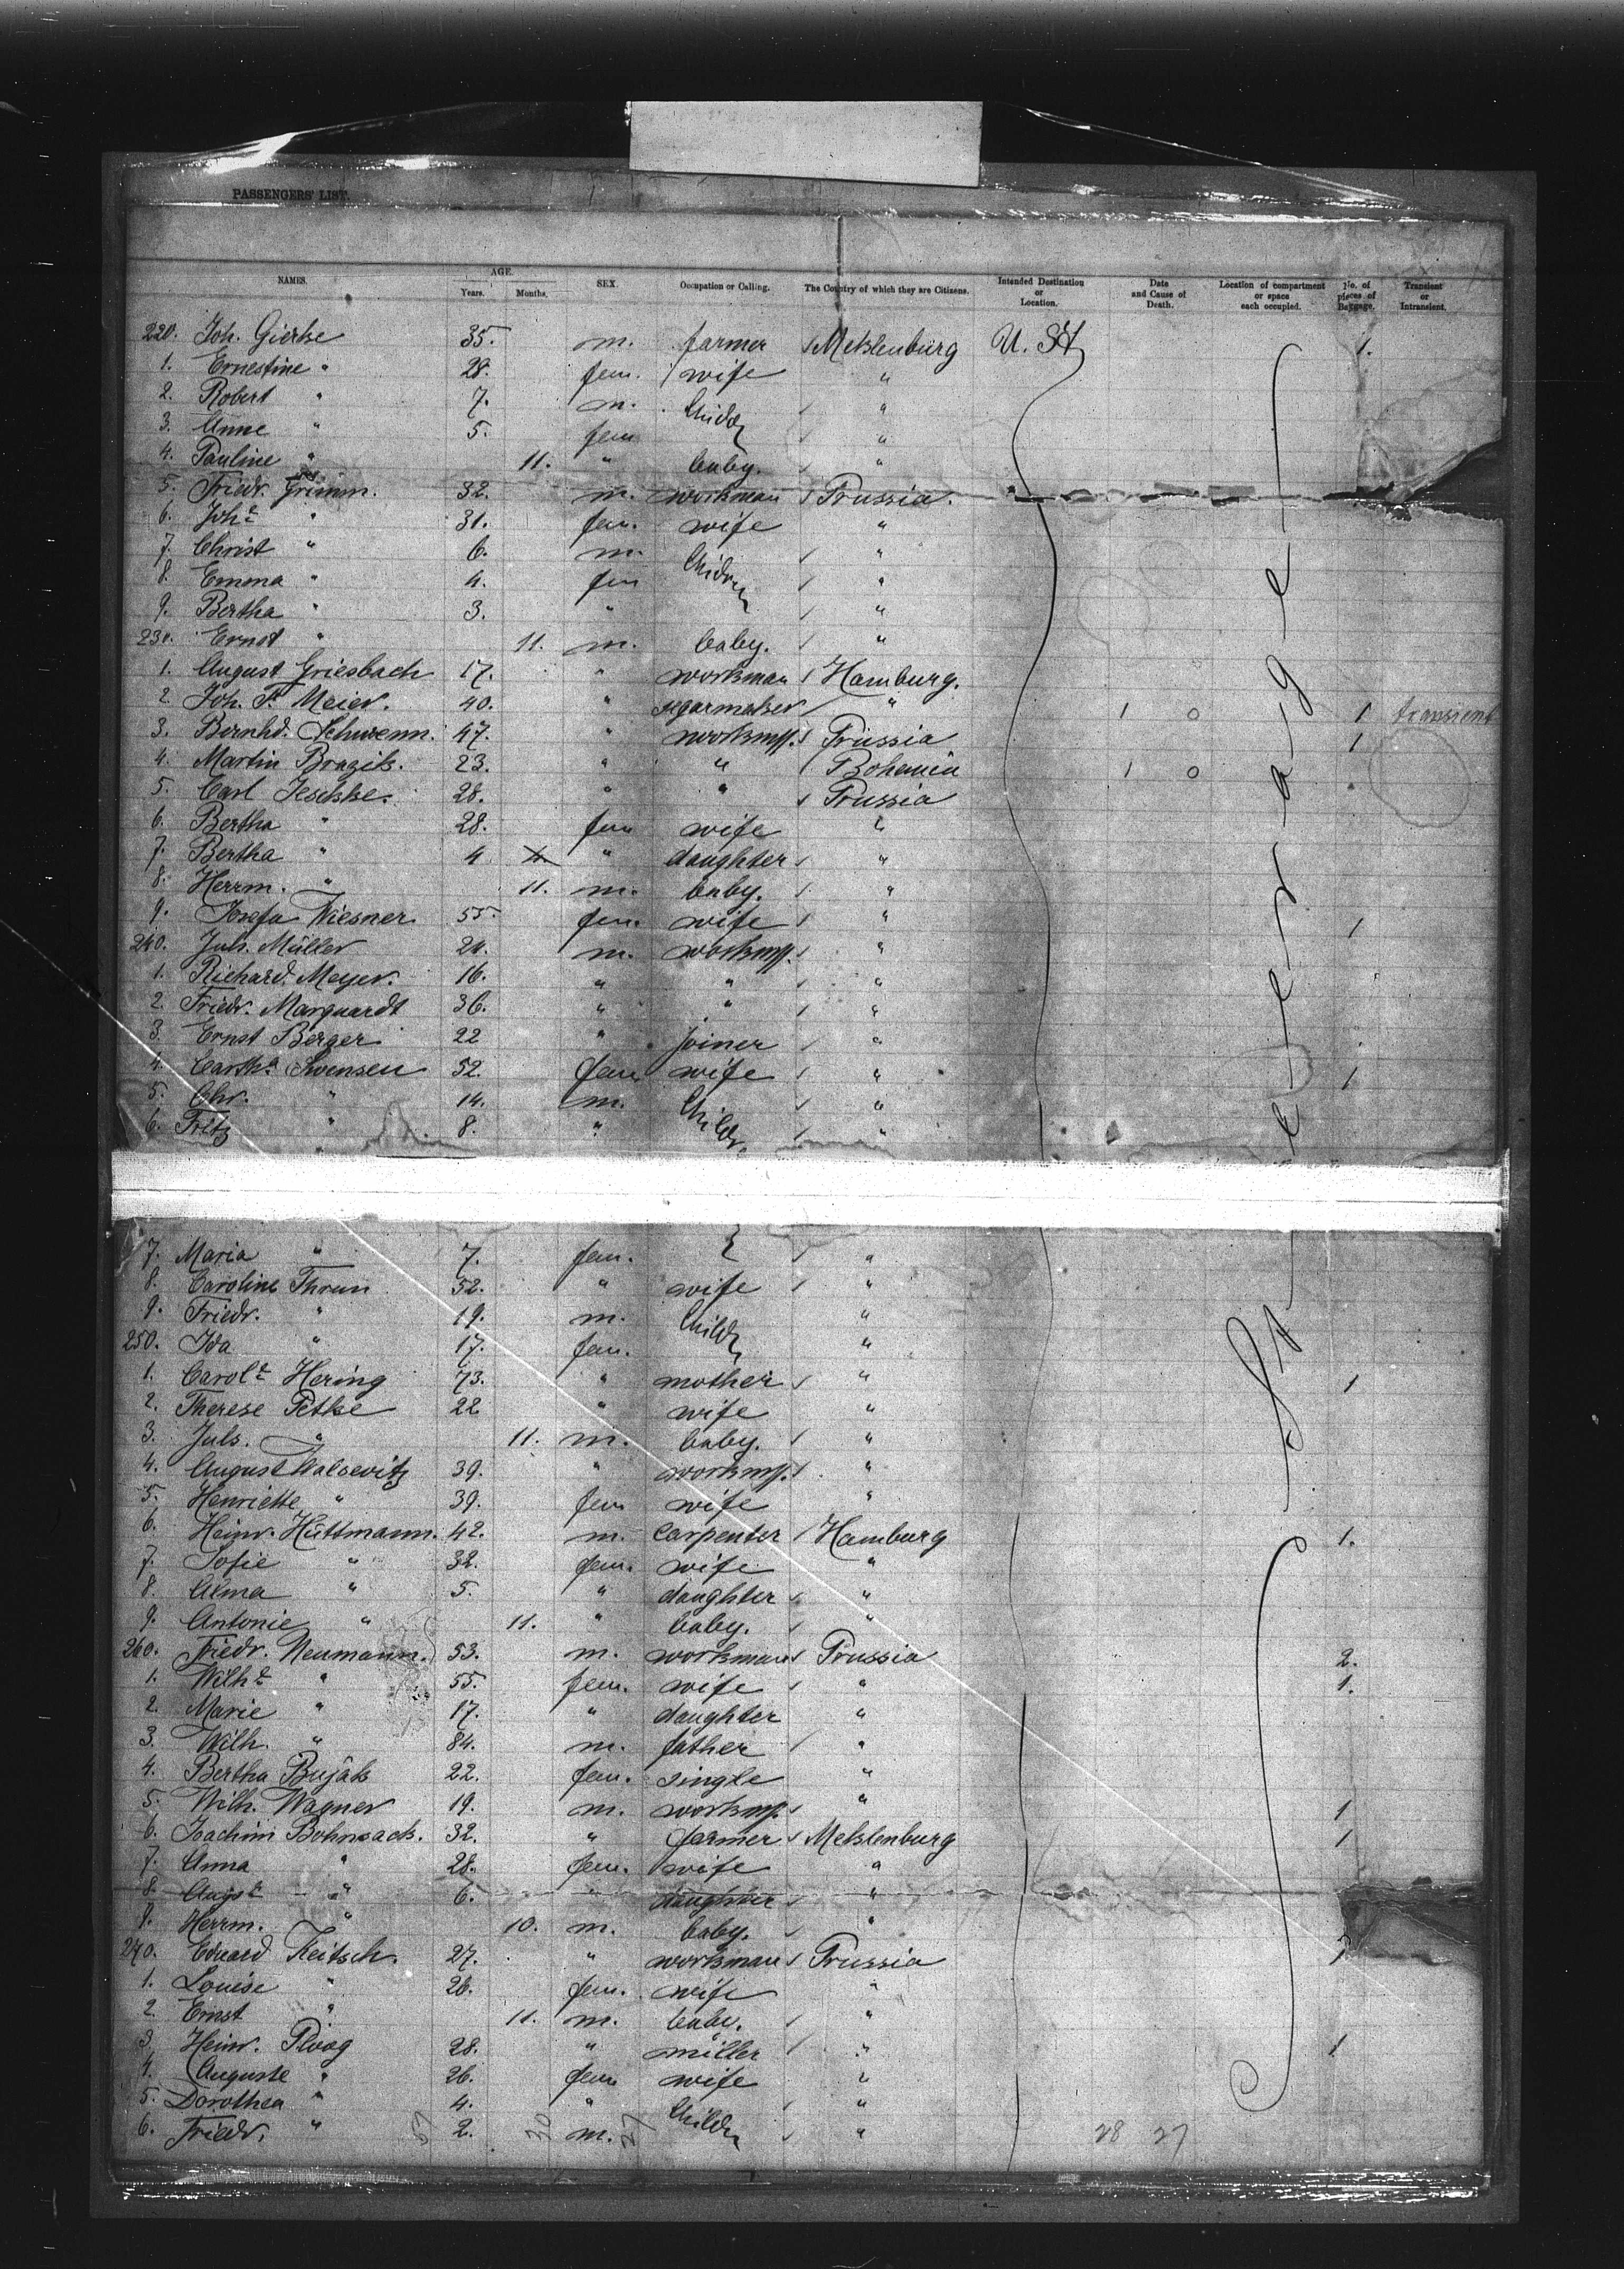 PASSENGERS' LIST.
NAMES. AGE. Years. Months. SEX. Occupation or Calling. The Country of which they are Citizens. Intended Destination or Location. Date and Cause of Death. Location of compartment or space each occupied. No. of pieces of Baggage. Transient or Intransient.
220. Joh. Gierke 35. m. farmer Meklenburg U. St 1.
1. Ernestine " 28. fem. wife "
2. Robert " 7. m. Childr "
3. Anne " 5. fem "
4. Pauline " 11. " baby. "
5. Friedr. Grimm. 32. m. workman Prussia.
6. Johe " 31. fem. wife "
7. Christ " 6. m. Childrn "
8. Emma " 4. fem "
9. Bertha " 3. " "
230. Ernst " 11. m. baby. "
1. August Griesbach 17. " workman Hamburg.
2. Joh. F. Meier. 40. " segarmaker " 1 0 1 transient
3. Bernhd. Schwenn. 47. " workmn. Prussia 1
4. Martin Brazik. 23. " " Bohemia 1 0
5. Carl Jeschke. 28. " " Prussia
6. Bertha " 28. fem wife "
7. Bertha " 4 " daughter "
8. Herrm. " 11. m. baby. "
9. Josefa Wiesner 55. fem. wife " 1
240. Joh. Müller 24. m. workmn. "
1. Richard Meyer. 16. " " "
2. Friedr. Marquardt 36. " " "
3. Ernst Berger 22 " joiner "
4. Cartha Swensen 52. fem wife " 1
5. Chr. " 14. m. Childr. "
6. Fritz " 8. " "
7. Maria " 7. fem. "
8. Caroline Thrun 52. " wife "
9. Friedr. " 19. m. Childr "
250. Ida " 17. fem. "
1. Carole Hering 73. " mother " 1
2. Therese Petke 22 " wife "
3. Juls. " 11. m. baby. "
4. August Walsevitz 39. " workmn. "
5. Henriette " 39. fem wife "
6. Heinr. Hüttmann. 42. m. carpenter Hamburg 1.
7. Sofie " 32. fem. wife "
8. Alma " 5. " daughter "
9. Antonie " 11. " baby. "
260. Friedr. Neumann. 53. m. workman Prussia 2.
1. Wilhe " 55. fem. wife " 1.
2. Marie " 17. " daughter "
3. Wilh. " 84. m. father "
4. Bertha Bujak 22. fem. single "
5. Wilh. Wagner 19. m. workmn. " 1
6. Joachim Bohnsack. 32. " farmer Meklenburg 1
7. Anna " 28. fem. wife "
8. Auguste " 6. " daughter "
9. Herrm. " 10. m. baby. "
270. Eduard Keitsch. 27. " workman Prussia
1. Louise " 26. fem. wife "
2. Ernst " 11. m. baby. "
3. Heinr. Ploog 28. " miller " 1
4. Auguste " 26. fem wife "
5. Dorothea " 4. " Childrn "
6. Friedr. " 2. m. "
28 27
Steerage